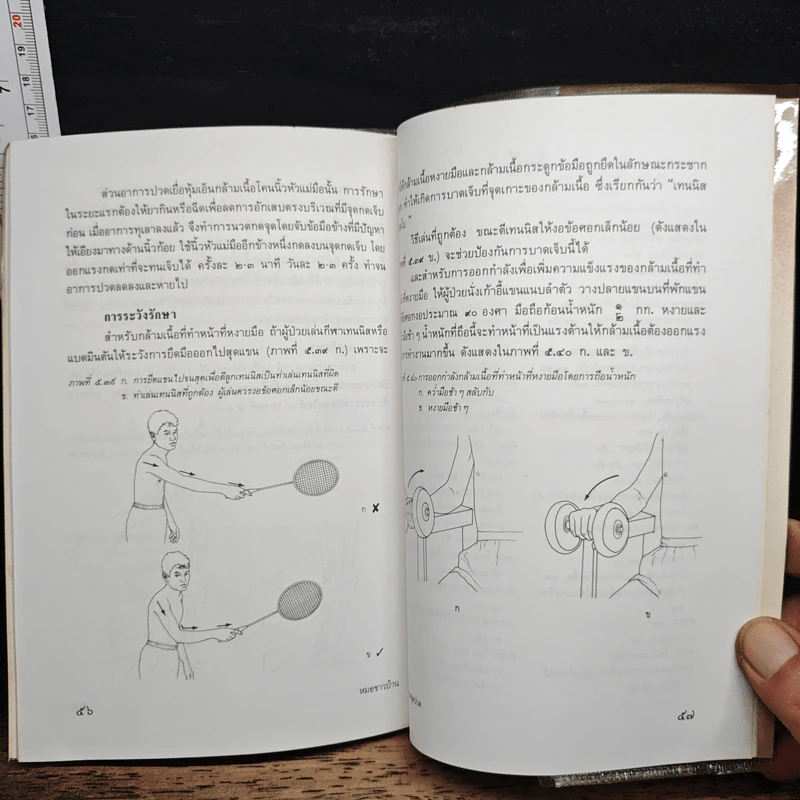 ส่วนอาการปวดเยื่อหุ้มเอ็นกล้ามเนื้อโคนนิ้วหัวแม่มือนั้น การรักษา
ในระยะแรกต้องให้ยากินหรือฉีดเพื่อลดการอักเสบตรงบริเวณที่มีจุดกดเจ็บ
ก่อน เมื่ออาการทุเลาลงแล้ว จึงทำการนวดกดจุดโดยจับข้อมือข้างที่มีปัญหา
ให้เอียงมาทางด้านนิ้วก้อย ใช้นิ้วหัวแม่มืออีกข้างหนึ่งกดลงบนจุดกดเจ็บ โดย
ออกแรงกดเท่าที่จะทนเจ็บได้ ครั้งละ ๒-๓ นาที วันละ ๒-๓ ครั้ง ทำจน
อาการปวดลดลงและหายไป
การระวังรักษา
สำหรับกล้ามเนื้อที่ทำหน้าที่หงายมือ ถ้าผู้ป่วยเล่นกีฬาเทนนิสหรือ
แบดมินตันให้ระวังการยืดมือออกไปสุดแขน (ภาพที่ ๕.๓๙ ก.) เพราะจะ
ภาพที่ ๕.๓๙ ก. การยืดแขนไปจนสุดเพื่อตีลูกเทนนิสเป็นท่าเล่นเทนนิสที่ผิด
ข. ท่าเล่นเทนนิสที่ถูกต้อง ผู้เล่นควรงอข้อศอกเล็กน้อยขณะตี
ก ✘
ข ✓
หมอชาวบ้าน
๕๖
กล้ามเนื้อหงายมือและกล้ามเนื้อกระดูกข้อมือถูกยืดในลักษณะกระชาก
ทำให้เกิดการบาดเจ็บที่จุดเกาะของกล้ามเนื้อ ซึ่งเรียกกันว่า "เทนนิส
วิธีเล่นที่ถูกต้อง ขณะตีเทนนิสให้งอข้อศอกเล็กน้อย (ดังแสดงใน
ที่ ๕.๓๙ ข.) จะช่วยป้องกันการบาดเจ็บนี้ได้
และสำหรับการออกกำลังเพื่อเพิ่มความแข็งแรงของกล้ามเนื้อที่ทำ
ที่หงายมือ ให้ผู้ป่วยนั่งเก้าอี้แขนแนบลำตัว วางปลายแขนบนที่พักแขน
ศอกงอประมาณ ๙๐ องศา มือถือก้อนน้ำหนัก ๑/๒ กก. หงายและ
มือช้า ๆ น้ำหนักที่ถือนี้จะทำหน้าที่เป็นแรงต้านให้กล้ามเนื้อต้องออกแรง
การทำงานมากขึ้น ดังแสดงในภาพที่ ๕.๔๐ ก. และ ข.
ที่ ๕.๔๐ การออกกำลังกล้ามเนื้อที่ทำหน้าที่หงายมือโดยการถือน้ำหนัก
ก. คว่ำมือช้า ๆ สลับกับ
ข. หงายมือช้า ๆ
ก
ข
๕๗
17
18
19
20